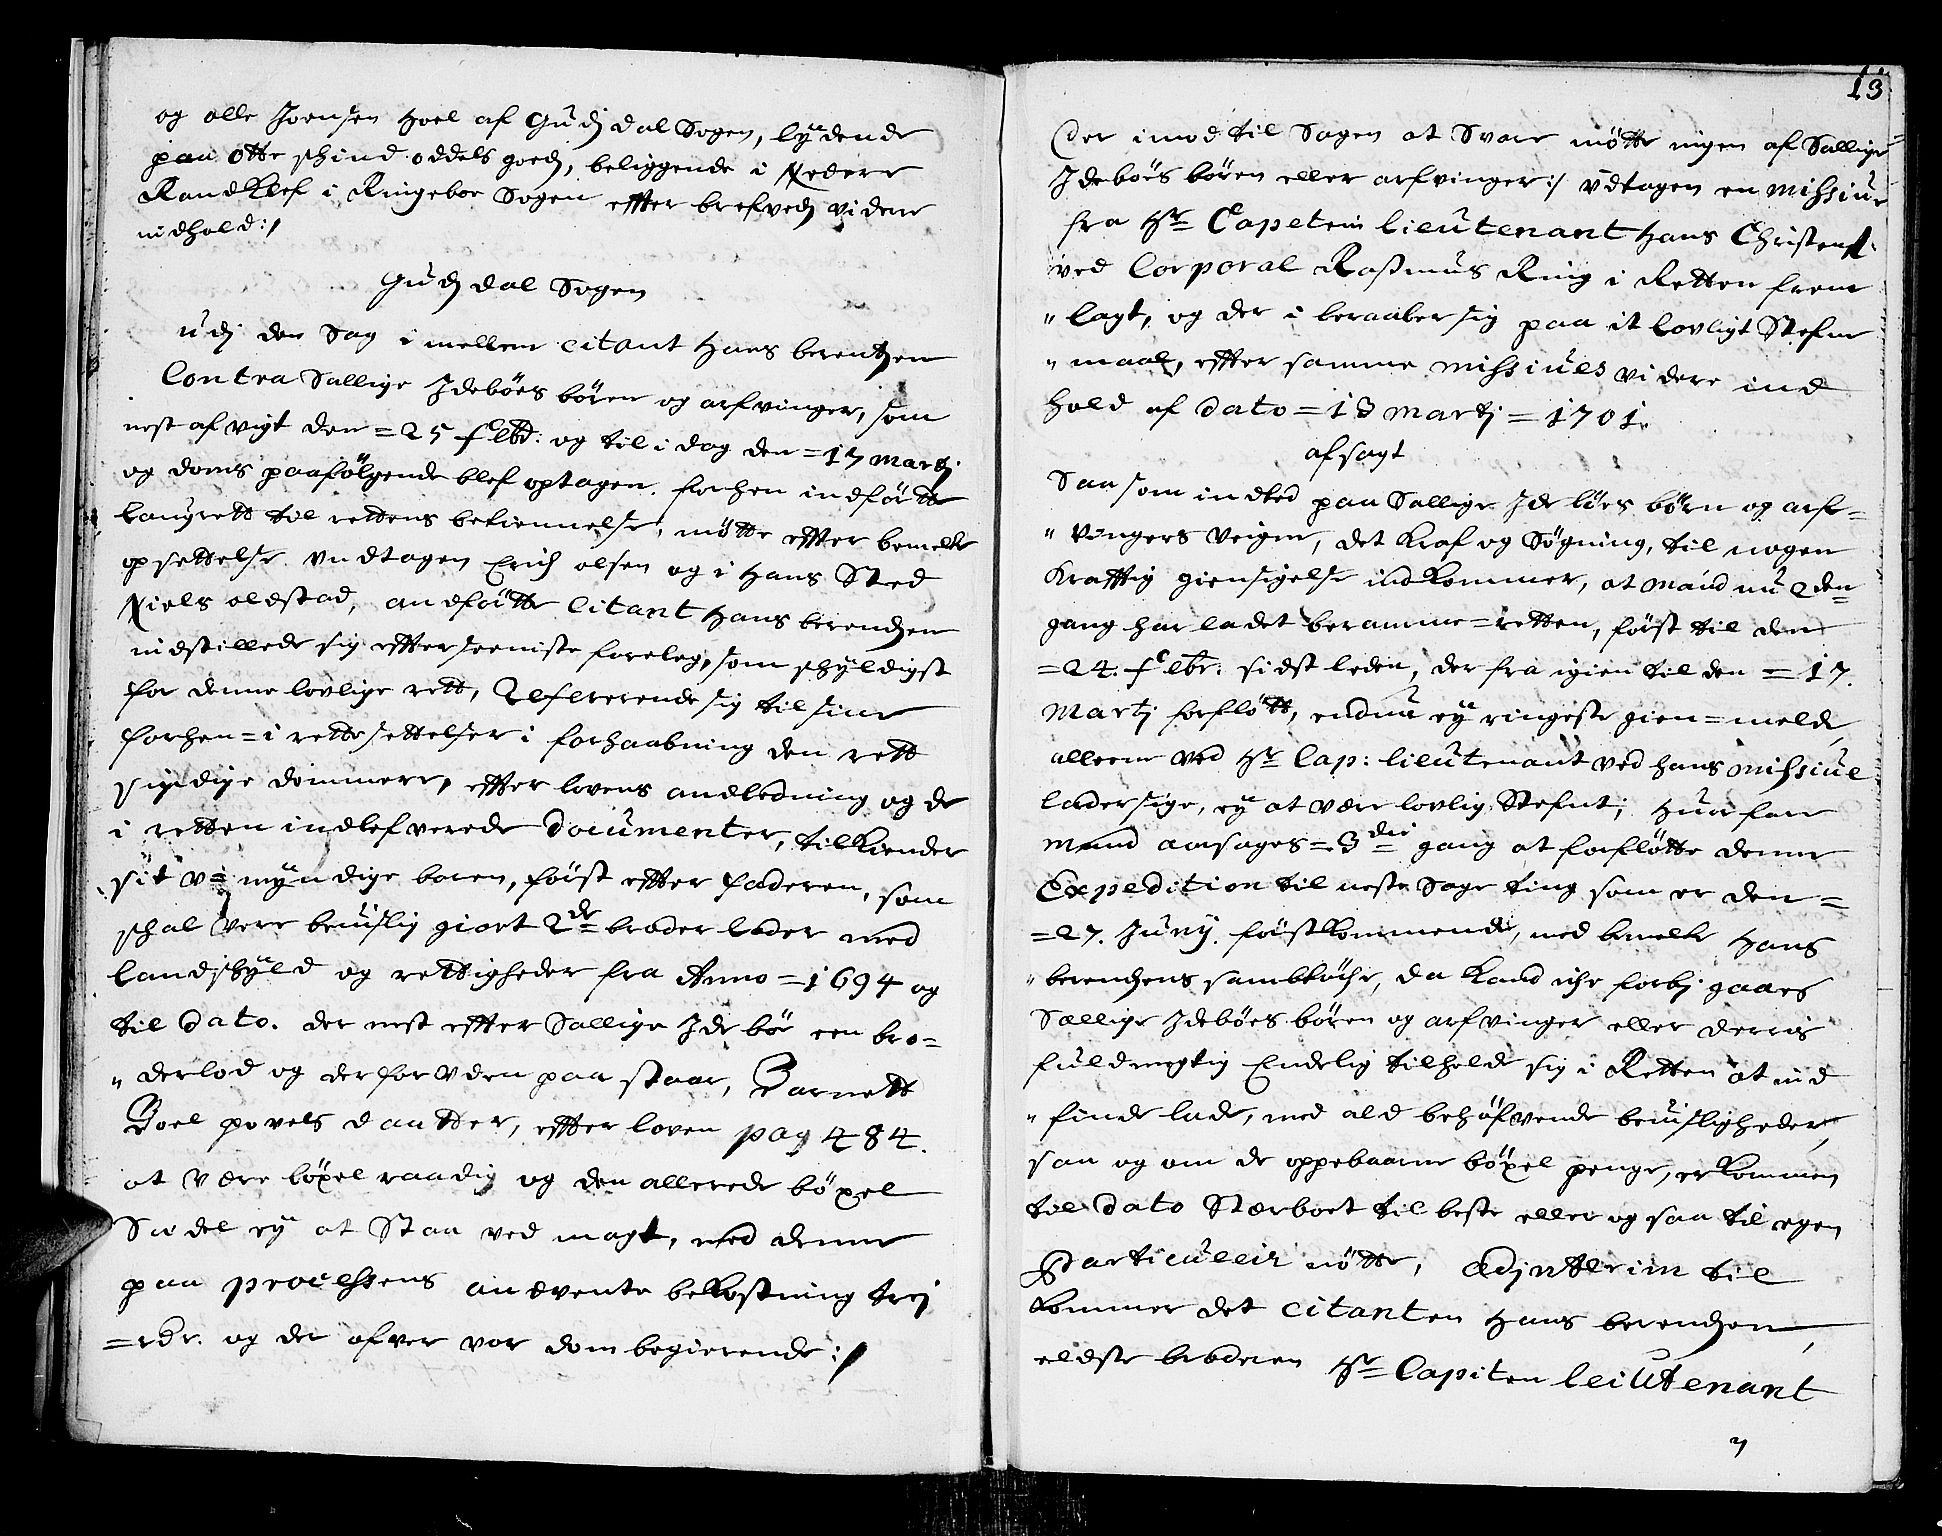 og olle Joensen Hoel af Gudj dal Sogen, lydende
paa otte schind oddels goedz, beliggende i Nedere
Randklef i Ringeboe Sogen effter brefvedz videre
indhold:/
Gudj dal Sogen
udj den Sag i mellem citant Hans berentzen
Contra Sallige Ideböes bören og arfvinger, som
nest afvigt den =25 febd: og til i dag den =17 martj
og doms paafölgende blef optagen. forhen indförtte
laugrett til rettens betiennelse, mötte effter bemelte
opsettelse undtagen Erich olsen og i Hans Sted
Niels olestad, andförtte Citant Hans berendzen
indstillede sig effter seeniste foreleg, som schyldigst
for denne lovlige rett, Refererende sig til sine
forhen=i rette settelser i forhaabning den rett
sindige dommere, effter lovens andledning og de
i retten indlefverede documenter, tilkiender
sit v=myndige baren, först effter faderen, som
schal vere beuislig giort 2de broder loder med
landschyld og rettigheder fra Anno =1694 og
til dato. der nest effter Sallige Ide bör een bro=
" derlod og der for uden paa staar, Barnett
Boel povels daatter, effter loven pag 484.
at være böxel raadig og den allerede böxel
Sædel ey at Staa ved magt, med denne
paa processens anvente bekostning trej
=rdr. og der ofver vor dom begierende:/
13
Der imod til Sagen at Svare mötte ingen af Sallige
Idebörs bören eller arfvinger:/ udtagen en missiue
fra Hr Capetein lieutenant Hans Christens:
ved Corporal Rasmus Ring i Retten frem
" lagt, og der i beraaber sig paa it lovligt Stefne
" maal, effter samme missiues videre ind
hold af dato =13 martj =1701.
afsagt
Saa som indted paa Sallige Ide böes börn og arf=
" vingers veigne, det Kraf og Sögning, til nogen
Krafftig giensigelse indkommer, at mand nu 2den=
gang har ladet beramme=retten, först til den
=24. febr: sidst leden, der fra igien til den =17.
Martj forflött, endnu ey ringeste gien=melde,
alleene ved Hr Cap: lieutenant ved hans missiue
lader sige, ey at være lovlig Stefnt; Huor fore
mand aarsages=3die gang at forflötte denne
Expedition til neste Sage ting som er den=
=27. Juny. först kommende, med bemelte Hans
" berendzens sambtöche, da Kand iche forbj gaaes
Sallige Idebörs bören og arfvinger eller deris
fuldmegtig Endelig tilholde sig i Retten at ind
" finde lade, med ald behöfvende beuisligheder,
saa og om de oppebaarne böxel penge, er kommen
til dato Stærboet til beste eller og saa til egen
Particulier nötte, Adjnterim til
kommer det citanten Hans berendzen,
eldste broderen Hr Capiten leiutenant